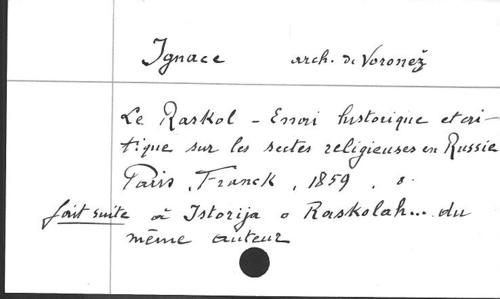 Ignace arch. de Voronež
Le Raskol - Essai historique et cri-
tique sur les sectes religieuses en Russie
Paris, Franck, 1859, 8.
fait suite à Istorija o Raskolah... du
même auteur